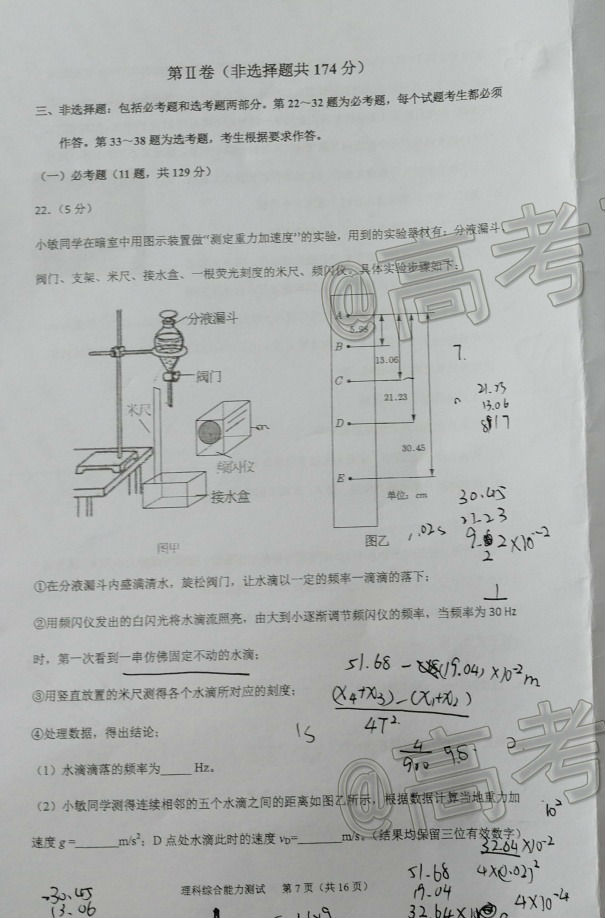 第Ⅱ卷（非选择题共 174 分）
三、非选择题：包括必考题和选考题两部分。第 22～32 题为必考题，每个试题考生都必须
作答。第 33～38 题为选考题，考生根据要求作答。
（一）必考题（11 题，共 129 分）
22.（5 分）
小敏同学在暗室中用图示装置做“测定重力加速度”的实验，用到的实验器材有：分液漏斗、
阀门、支架、米尺、接水盒、一根荧光刻度的米尺、频闪仪。具体实验步骤如下：
分液漏斗
阀门
米尺
频闪仪
接水盒
图甲
A
5.98
B
13.06
C
21.23
D
30.45
E
单位：cm
图乙
7.
21.23
13.06
30.45
21.23
①在分液漏斗内盛满清水，旋松阀门，让水滴以一定的频率一滴滴的落下；
②用频闪仪发出的白闪光将水滴流照亮，由大到小逐渐调节频闪仪的频率，当频率为 30 Hz
时，第一次看到一串仿佛固定不动的水滴；
③用竖直放置的米尺测得各个水滴所对应的刻度；
④处理数据，得出结论；
51.68 - (19.04) ×10⁻² m
(x₄+x₃)-(x₁+x₂)
4T²
（1）水滴滴落的频率为_____ Hz。
（2）小敏同学测得连续相邻的五个水滴之间的距离如图乙所示，根据数据计算当地重力加
速度 g =_______m/s²；D 点处水滴此时的速度 v_D=_______m/s。（结果均保留三位有效数字）
10²
32.64×10⁻²
4×(0.02)²
51.68
19.04
4×10⁻⁴
30.45
13.06
理科综合能力测试 第 7 页（共 16 页）
@高考
@高考